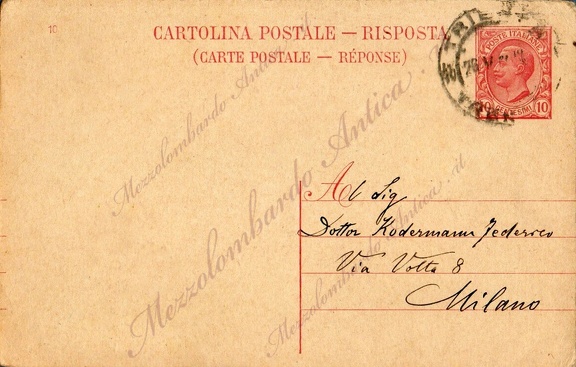 10
CARTOLINA POSTALE — RISPOSTA
(CARTE POSTALE — RÉPONSE)
TRIESTE
POSTE ITALIANE
10 CENTESIMI 10
Al Sig
Dottor Kodermann Federico
Via Volta 8
Milano
Mezzolombardo Antica.it
Mezzolombardo Antica
Mezzolombardo Antica.it